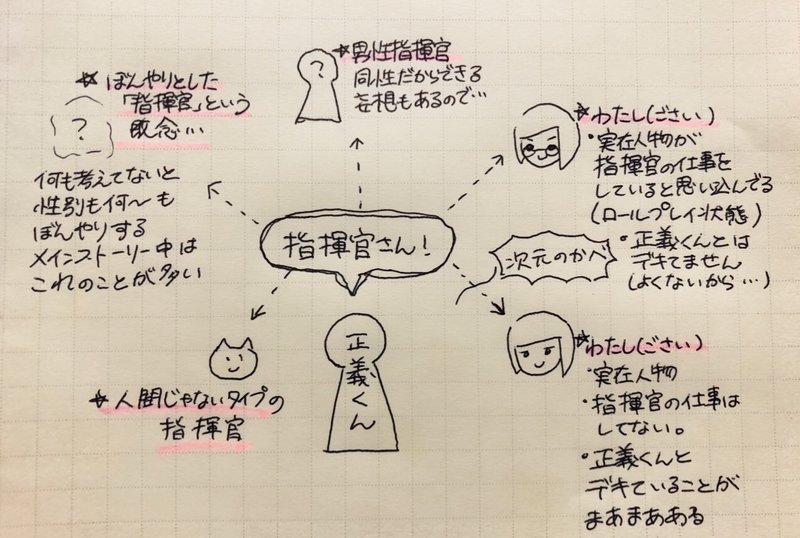 ☆ぼんやりとした
「指揮官」という
概念…
?
何も考えてないと
性別も何〜も
ぼんやりする
メインストーリー中は
これのことが多い
☆男性指揮官
同性だからできる
妄想もあるので…
?
☆わたし(ごさい)
・実在人物が
指揮官の仕事を
していると思い込んでる
(ロールプレイ状態)
・正義くんとは
デキてません
(よくないから…)
指揮官さん!
次元のかべ
☆人間じゃないタイプの
指揮官
正義くん
☆わたし(ごさい)
・実在人物
・指揮官の仕事は
してない。
・正義くんと
デキていることが
まあまあある